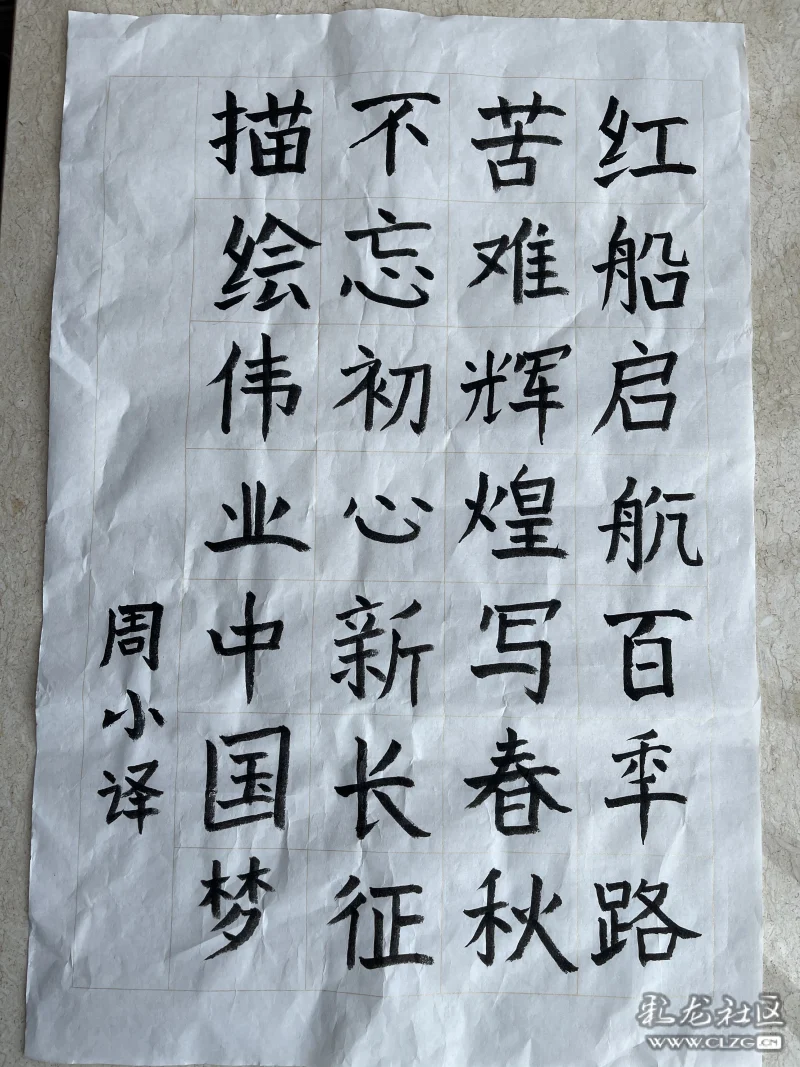 红船启航百年路
苦难辉煌写春秋
不忘初心新长征
描绘伟业中国梦
周小译
彩龙社区
WWW.CLZG.CN